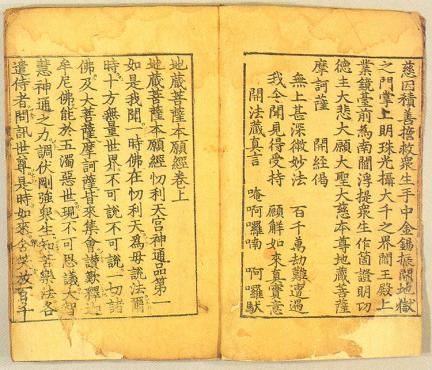 慈因積善誓救衆生手中金錫振開地獄
之門掌上明珠光攝大千之界閻王殿上
業鏡臺前爲南閻浮提衆生作箇證明功
德主大悲大願大聖大慈本尊地藏菩薩
摩訶薩　開經偈
無上甚深微妙法　百千萬劫難遭遇
我今聞見得受持　願解如來眞實意
開法藏眞言　唵啊囉喃　啊囉馱
地藏菩薩本願經卷上
地藏菩薩本願經忉利天宮神通品第一
如是我聞一時佛在忉利天爲母說法爾
時十方無量世界不可說不可說一切諸
佛及大菩薩摩訶薩皆來集會讚歎釋迦
牟尼佛能於五濁惡世現不可思議大智
慧神通之力調伏剛強衆生知苦樂法各
遣侍者問訊世尊是時如來含笑放百千